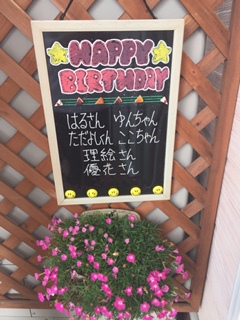 HAPPY
BIRTHDAY
はるさん ゆんちゃん
ただよしくん ここちゃん
理絵さん
優花さん